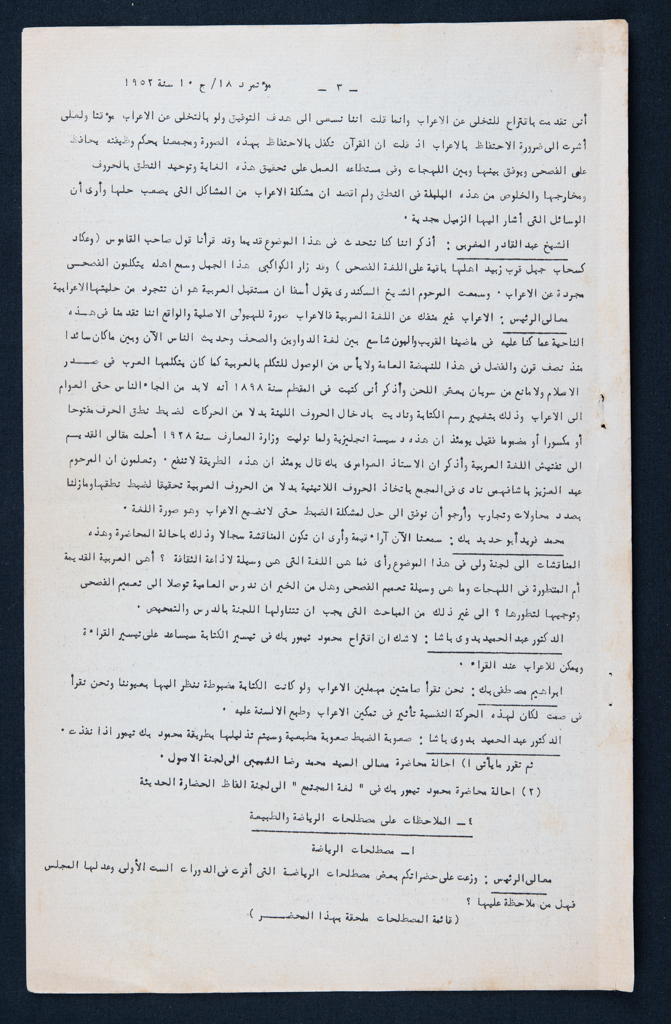 - ٣ - مؤتمر د ١٨/ ج ١٠ سنة ١٩٥٢
أنى تقدمت باقتراح للتخلى عن الاعراب وانما قلت اننا نسعى الى هدف التوفيق ولو بالتخلى عن الاعراب مؤقتا ولعلى
أشرت الى ضرورة الاحتفاظ بالاعراب اذ قلت ان القرآن تكفل بالاحتفاظ بهذه الصورة ومجمعنا بحكم وظيفته يحافظ
على الفصحى ويوفق بينها وبين اللهجات وفى مستطاعه العمل على تحقيق هذه الغاية وتوحيد النطق بالحروف
ومخارجها والخلوص من هذه البلبلة فى النطق ولم اقصد ان مشكلة الاعراب من المشاكل التى يصعب حلها وأرى أن
الوسائل التى أشار اليها الزميل مجدية ٠
الشيخ عبد القادر المغربى : أذكر اننا كنا نتحدث فى هذا الموضوع قديما وقد قرأنا قول صاحب القاموس (وعكاد
كسحاب جبل قرب زبيد اهلها باقية على اللغة الفصحى ) وقد زار الكواكبى هذا الجبل وسمع اهله يتكلمون الفصحى
مجردة عن الاعراب ٠ وسمعت المرحوم الشيخ السكندرى يقول أسفا ان مستقبل العربية هو ان تتجرد من حليتها الاعرابية
معالى الرئيس : الاعراب غير منفك عن اللغة العربية فالاعراب صورة للهيولى الاصلية والواقع اننا تقدمنا فى هذه
الناحية عما كنا عليه فى ماضينا القريب والبون شاسع بين لغة الدواوين والصحف وحديث الناس الآن وبين ماكان سائدا
منذ نصف قرن والفضل فى هذا للنهضة العامة ولا يأس من الوصول للتكلم بالعربية كما كان يتكلمها العرب فى صدر
الاسلام ولا مانع من سريان بعض اللحن وأذكر أنى كتبت فى المقطم سنة ١٨٩٨ أنه لابد من الجاء الناس حتى العوام
الى الاعراب وذلك بتغيير رسم الكتابة وناديت بادخال الحروف اللينة بدلا من الحركات لضبط نطق الحرف مفتوحا
أو مكسورا أو مضموما فقيل يومئذ ان هذه دسيسة انجليزية ولما توليت وزارة المعارف سنة ١٩٢٨ أحلت مقالى القديم
الى تفتيش اللغة العربية وأذكر ان الاستاذ العوامرى بك قال يومئذ ان هذه الطريقة لا تنفع ٠ وتعلمون ان المرحوم
عبد العزيز باشا فهمى نادى فى المجمع باتخاذ الحروف اللاتينية بدلا من الحروف العربية تحقيقا لضبط نطقها ومازلنا
بصدد محاولات وتجارب وأرجو أن نوفق الى حل لمشكلة الضبط حتى لا تضيع الاعراب وهو صورة اللغة ٠
محمد فريد أبو حديد بك : سمعنا الآن آراء قيمة وأرى ان تكون المناقشة سجالا وذلك باحالة المحاضرة وهذه
المناقشات الى لجنة ولى فى هذا الموضوع رأى فما هى اللغة التى هى وسيلة لاذاعة الثقافة ؟ أهى العربية القديمة
أم المتطورة فى اللهجات وما هى وسيلة تعميم الفصحى وهل من الخير ان ندرس العامية توصلا الى تعميم الفصحى
وتوجيهها لتطورها ؟ الى غير ذلك من المباحث التى يجب ان تتناولها اللجنة بالدرس والتمحيص ٠
الدكتور عبد الحميد بدوى باشا : لا شك ان اقتراح محمود تيمور بك فى تيسير الكتابة سيساعد على تيسير القراءة
ويمكن للاعراب عند القراء ٠
ابراهيم مصطفى بك : نحن نقرأ صامتين مهملين الاعراب ولو كانت الكتابة مضبوطة ننظر اليها بعيوننا ونحن نقرأ
فى صمت لكان لهذه الحركة النفسية تأثير فى تمكين الاعراب وطبع الالسنة عليه ٠
الدكتور عبد الحميد بدوى باشا : صعوبة الضبط صعوبة مطبعية وسيتم تذليلها بطريقة محمود بك تيمور اذا نفذت ٠
ثم تقرر مايأتى ١) احالة محاضرة معالى السيد محمد رضا الشبيبى الى لجنة الاصول ٠
(٢) احالة محاضرة محمود تيمور بك فى " لغة المجتمع " الى لجنة الفاظ الحضارة الحديثة
٤ـ الملاحظات على مصطلحات الرياضة والطبيعة
١ـ مصطلحات الرياضة
معالى الرئيس : وزعت على حضراتكم بعض مصطلحات الرياضة التى أقرت فى الدورات الست الأولى وعدلها المجلس
فهل من ملاحظة عليها ؟
( قائمة المصطلحات ملحقة بهذا المحضر )